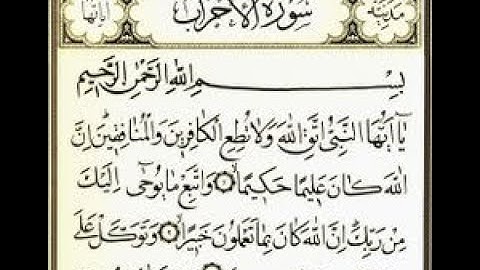 مدنية سورة الأحزاب آياتها
بسم الله الرحمن الرحيم
يا أيها النبي اتق الله ولا تطع الكافرين والمنافقين إن
الله كان عليما حكيما ۝ واتبع ما يوحى إليك
من ربك إن الله كان بما تعملون خبيرا ۝ وتوكل على